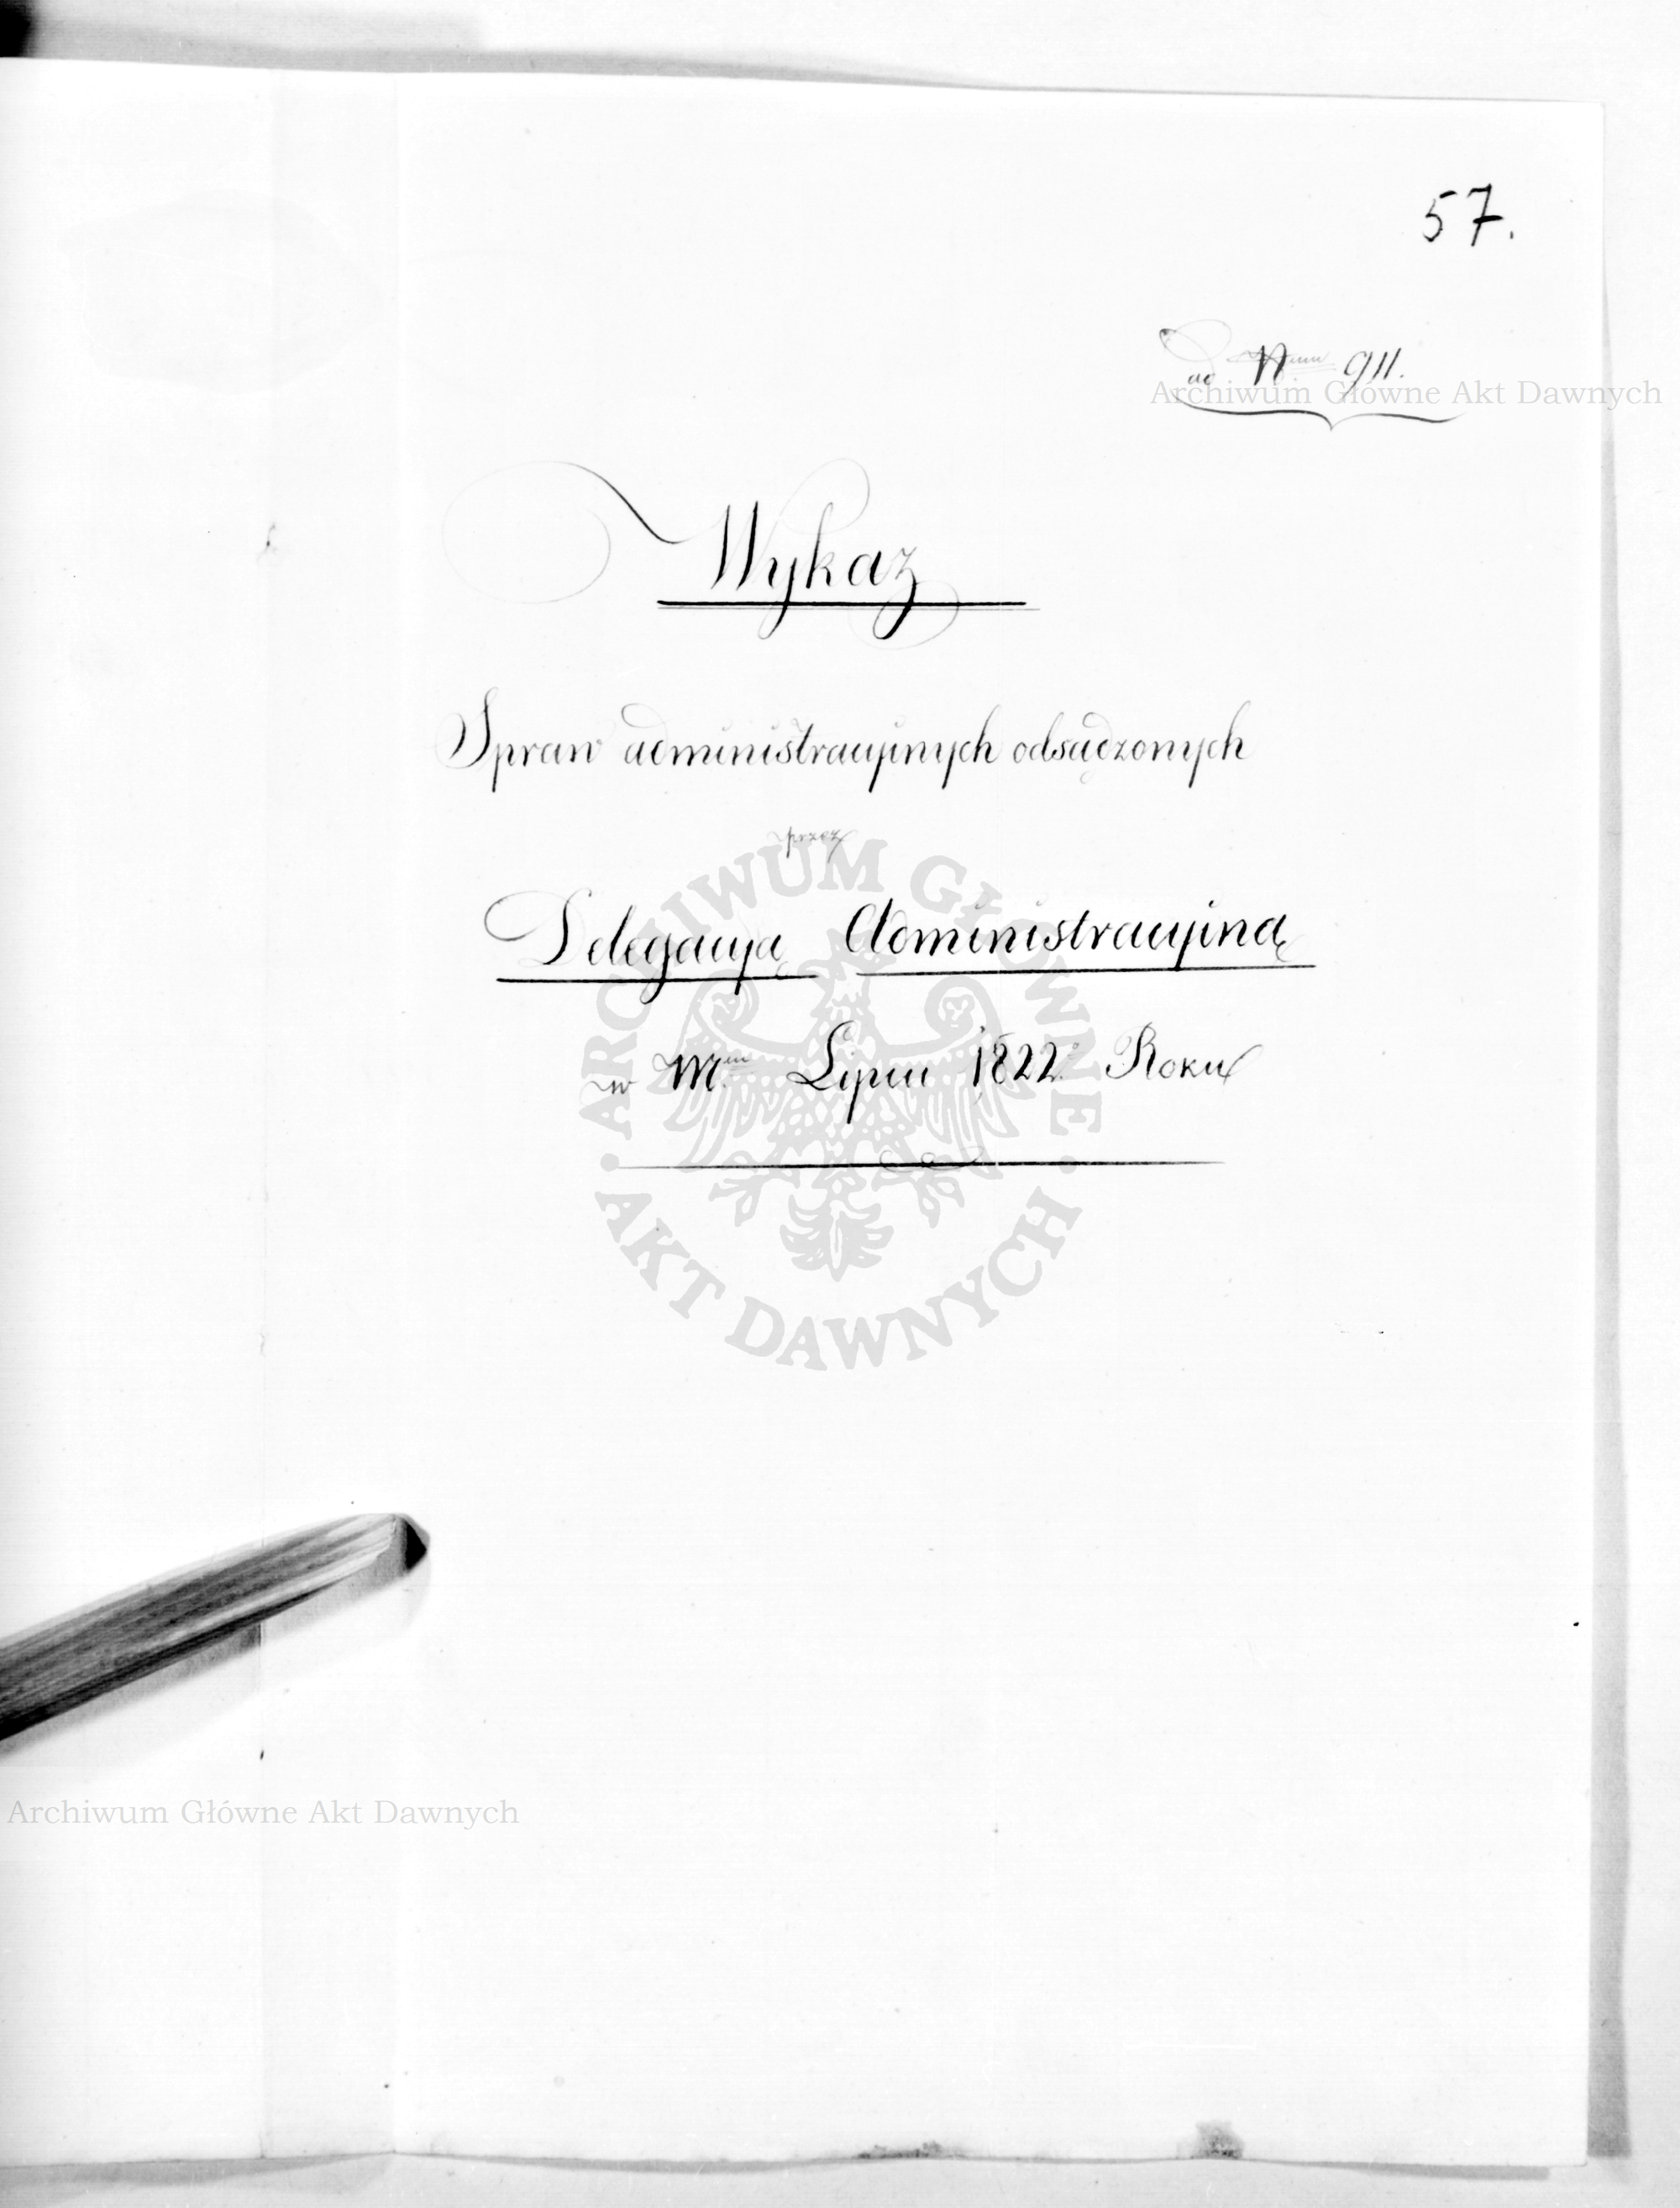 57.
ad Num 911.
Archiwum Główne Akt Dawnych
Wykaz
Spraw administracyinych odsądzonych
przez
Delegacyą Administracyiną
w M. Lipcu 1822. Roku
ARCHIWUM GŁÓWNE
AKT DAWNYCH
Archiwum Główne Akt Dawnych